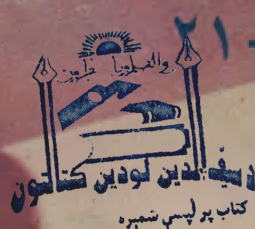 ۲۱
والقلم وما يسطرون
د سيف الدين لودين کتابتون
کتاب پر ليسي شمېره